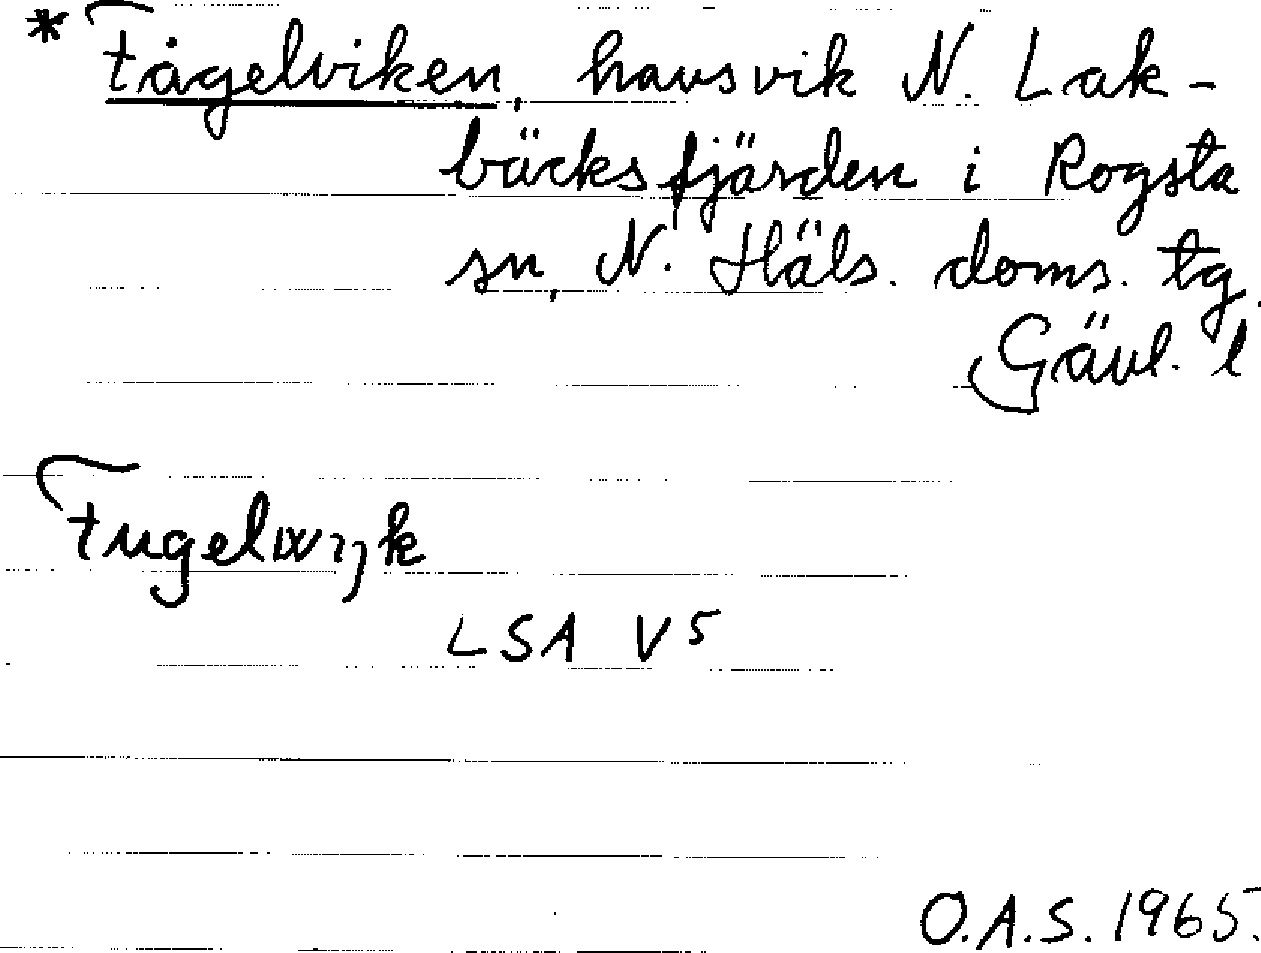 * Fågelviken, havsvik N. Lak-
bäcksfjärden i Rogsta
sn, N. Häls. doms. tg.
Gävl. l
Fugelwijk
LSA V5
O.A.S. 1965.